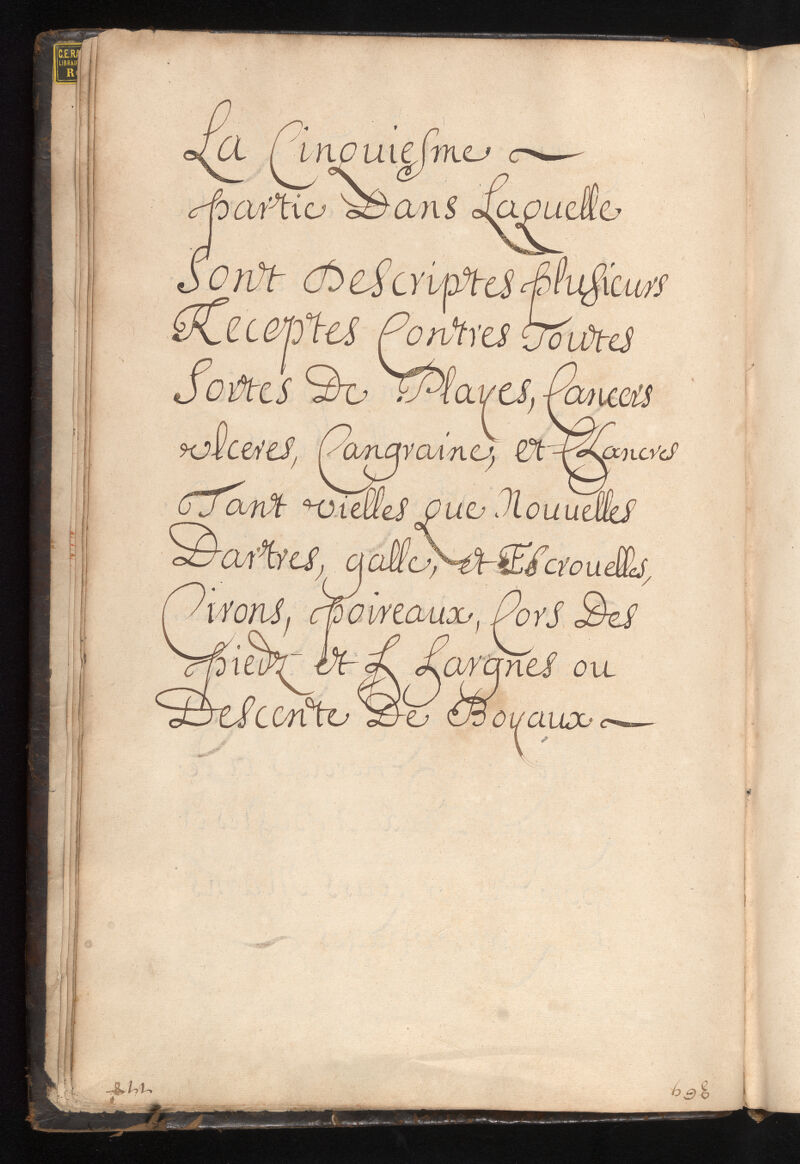 C.E.RA
LIBRAI
R
La Cinquiesme
partie Dans Laquelle
Sont Descriptes plusieurs
Receptes Contres Toutes
Sortes De Playes, Cancers
ulceres, Cangraine, et Chancres
Tant vielles que Nouuelles
Dartres, galle, et Escrouelles,
Cirons, poireaux, Cors Des
piedz et L Largnes ou
Descente De Boyaux
369